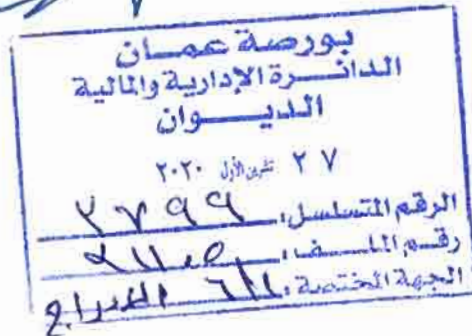 بورصة عمان
الدائرة الإدارية والمالية
الديوان
٢٧ تشرين الأول ٢٠٢٠
الرقم المتسلسل: ٣٧٩٩
رقم الملف:
الجهة المختصة: الادراج